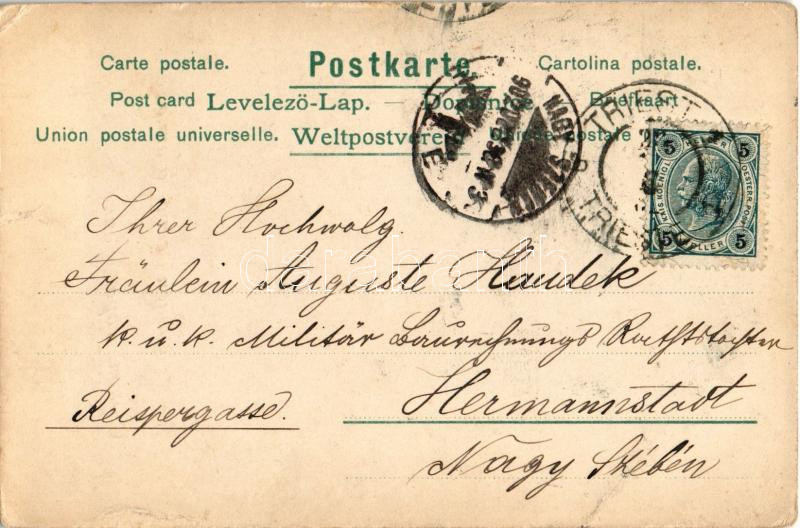 Carte postale. Postkarte. Cartolina postale.
Post card Levelezö-Lap. — Dopisnice Briefkaart
Union postale universelle. Weltpostverein postale
NAGY SZEBEN
TRIEST
TRIESTE
5 5
KAIS. KOENIGL. OESTERR. POST
5 HELLER 5
Ihrer Hochwolg.
Fräulein Auguste Haudek
k. u. k. Militär Baurechnungs Rathstochter
Reispergasse.
Hermannstadt
Nagy Szébén
darabanth